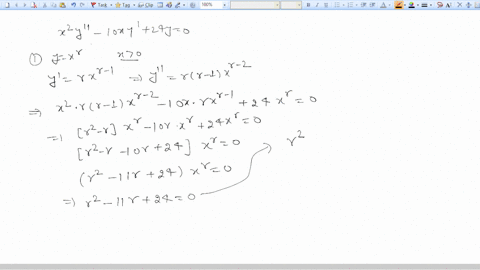 x²y'' - 10xy' + 24y = 0
① y = xʳ   x > 0
y' = r xʳ⁻¹ ⇒ y'' = r(r-1) xʳ⁻²
⇒ x² · r(r-1) xʳ⁻² - 10x · r xʳ⁻¹ + 24 xʳ = 0
⇒ [r² - r] xʳ - 10r · xʳ + 24xʳ = 0
[r² - r - 10r + 24] xʳ = 0
(r² - 11r + 24) xʳ = 0
⇒ r² - 11r + 24 = 0
r²